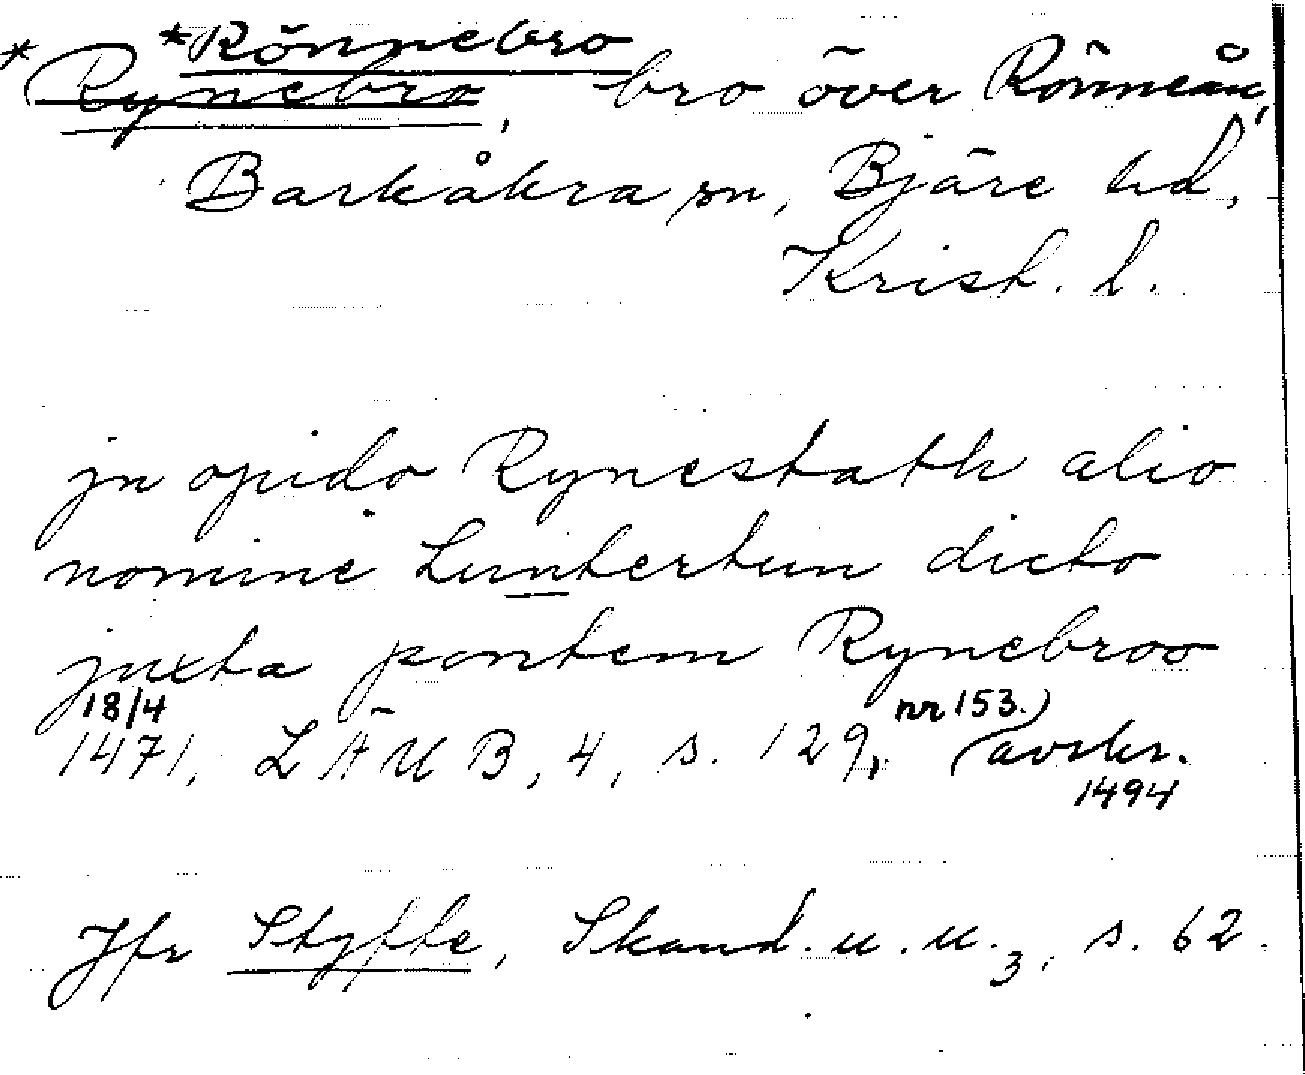 *Rönnebro
*Rynebro, bro över Rönneån,
Barkåkra sn, Bjäre hd,
Krist. l.
jn opido Rynestath alio
nomine Luntertun dicto
juxta pontem Rynebroo
18/4 nr 153.)
1471, LÄUB, 4, s. 129, (avskr.
1494
Jfr Styffe, Skand. u. u. 3, s. 62.